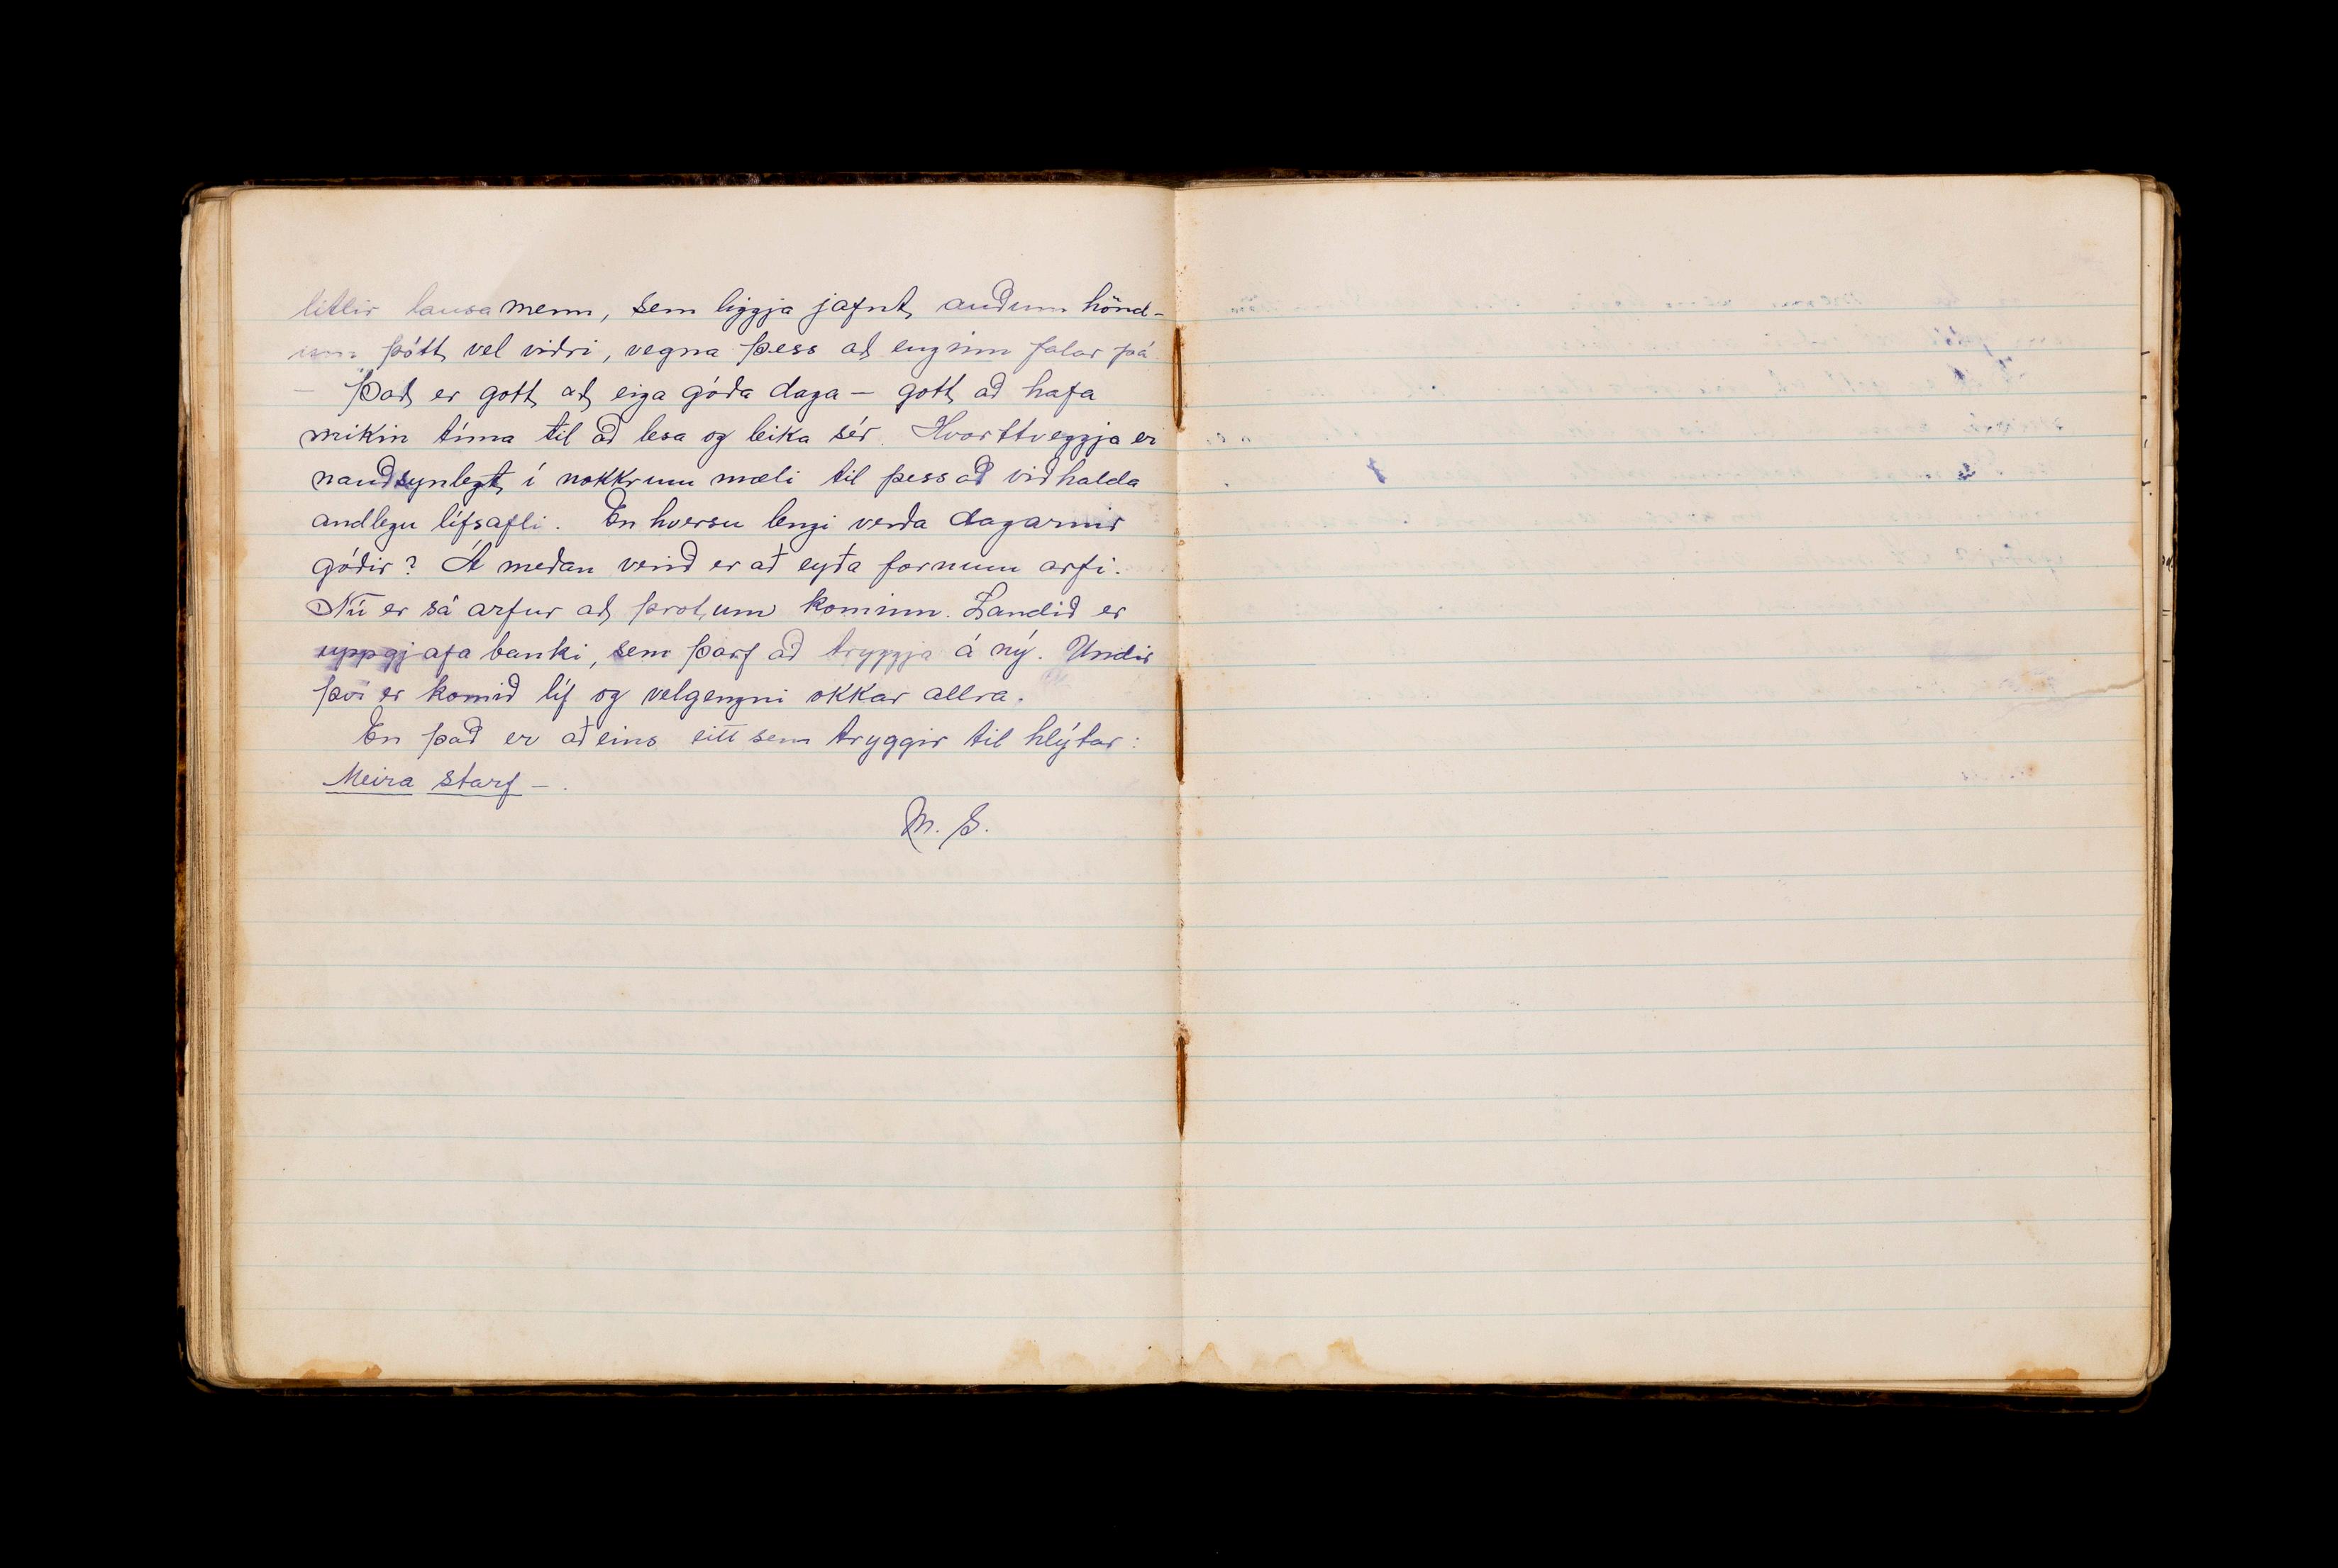 litlir lausamenn, sem liggja jafnt auðum hönd-
um þótt vel viðri, vegna þess að enginn falar þá
– Það er gott að eiga góða daga – gott að hafa
mikin tíma til að lesa og leika sér. Hvorttveggja er
nauðsynlegt í nokkrum mæli til þess að viðhalda
andlegu lífsafli. En hversu lengi verða dagarnir
góðir? Á meðan verið er að eyða fornum arfi.
Nú er sá arfur að þrotum kominn. Landið er
uppgjafa banki, sem þarf að tryggja á ný. Undir
því er komið líf og velgengni okkar allra.
En það er aðeins eitt sem tryggir til hlýtar:
Meira starf –.
M. S.